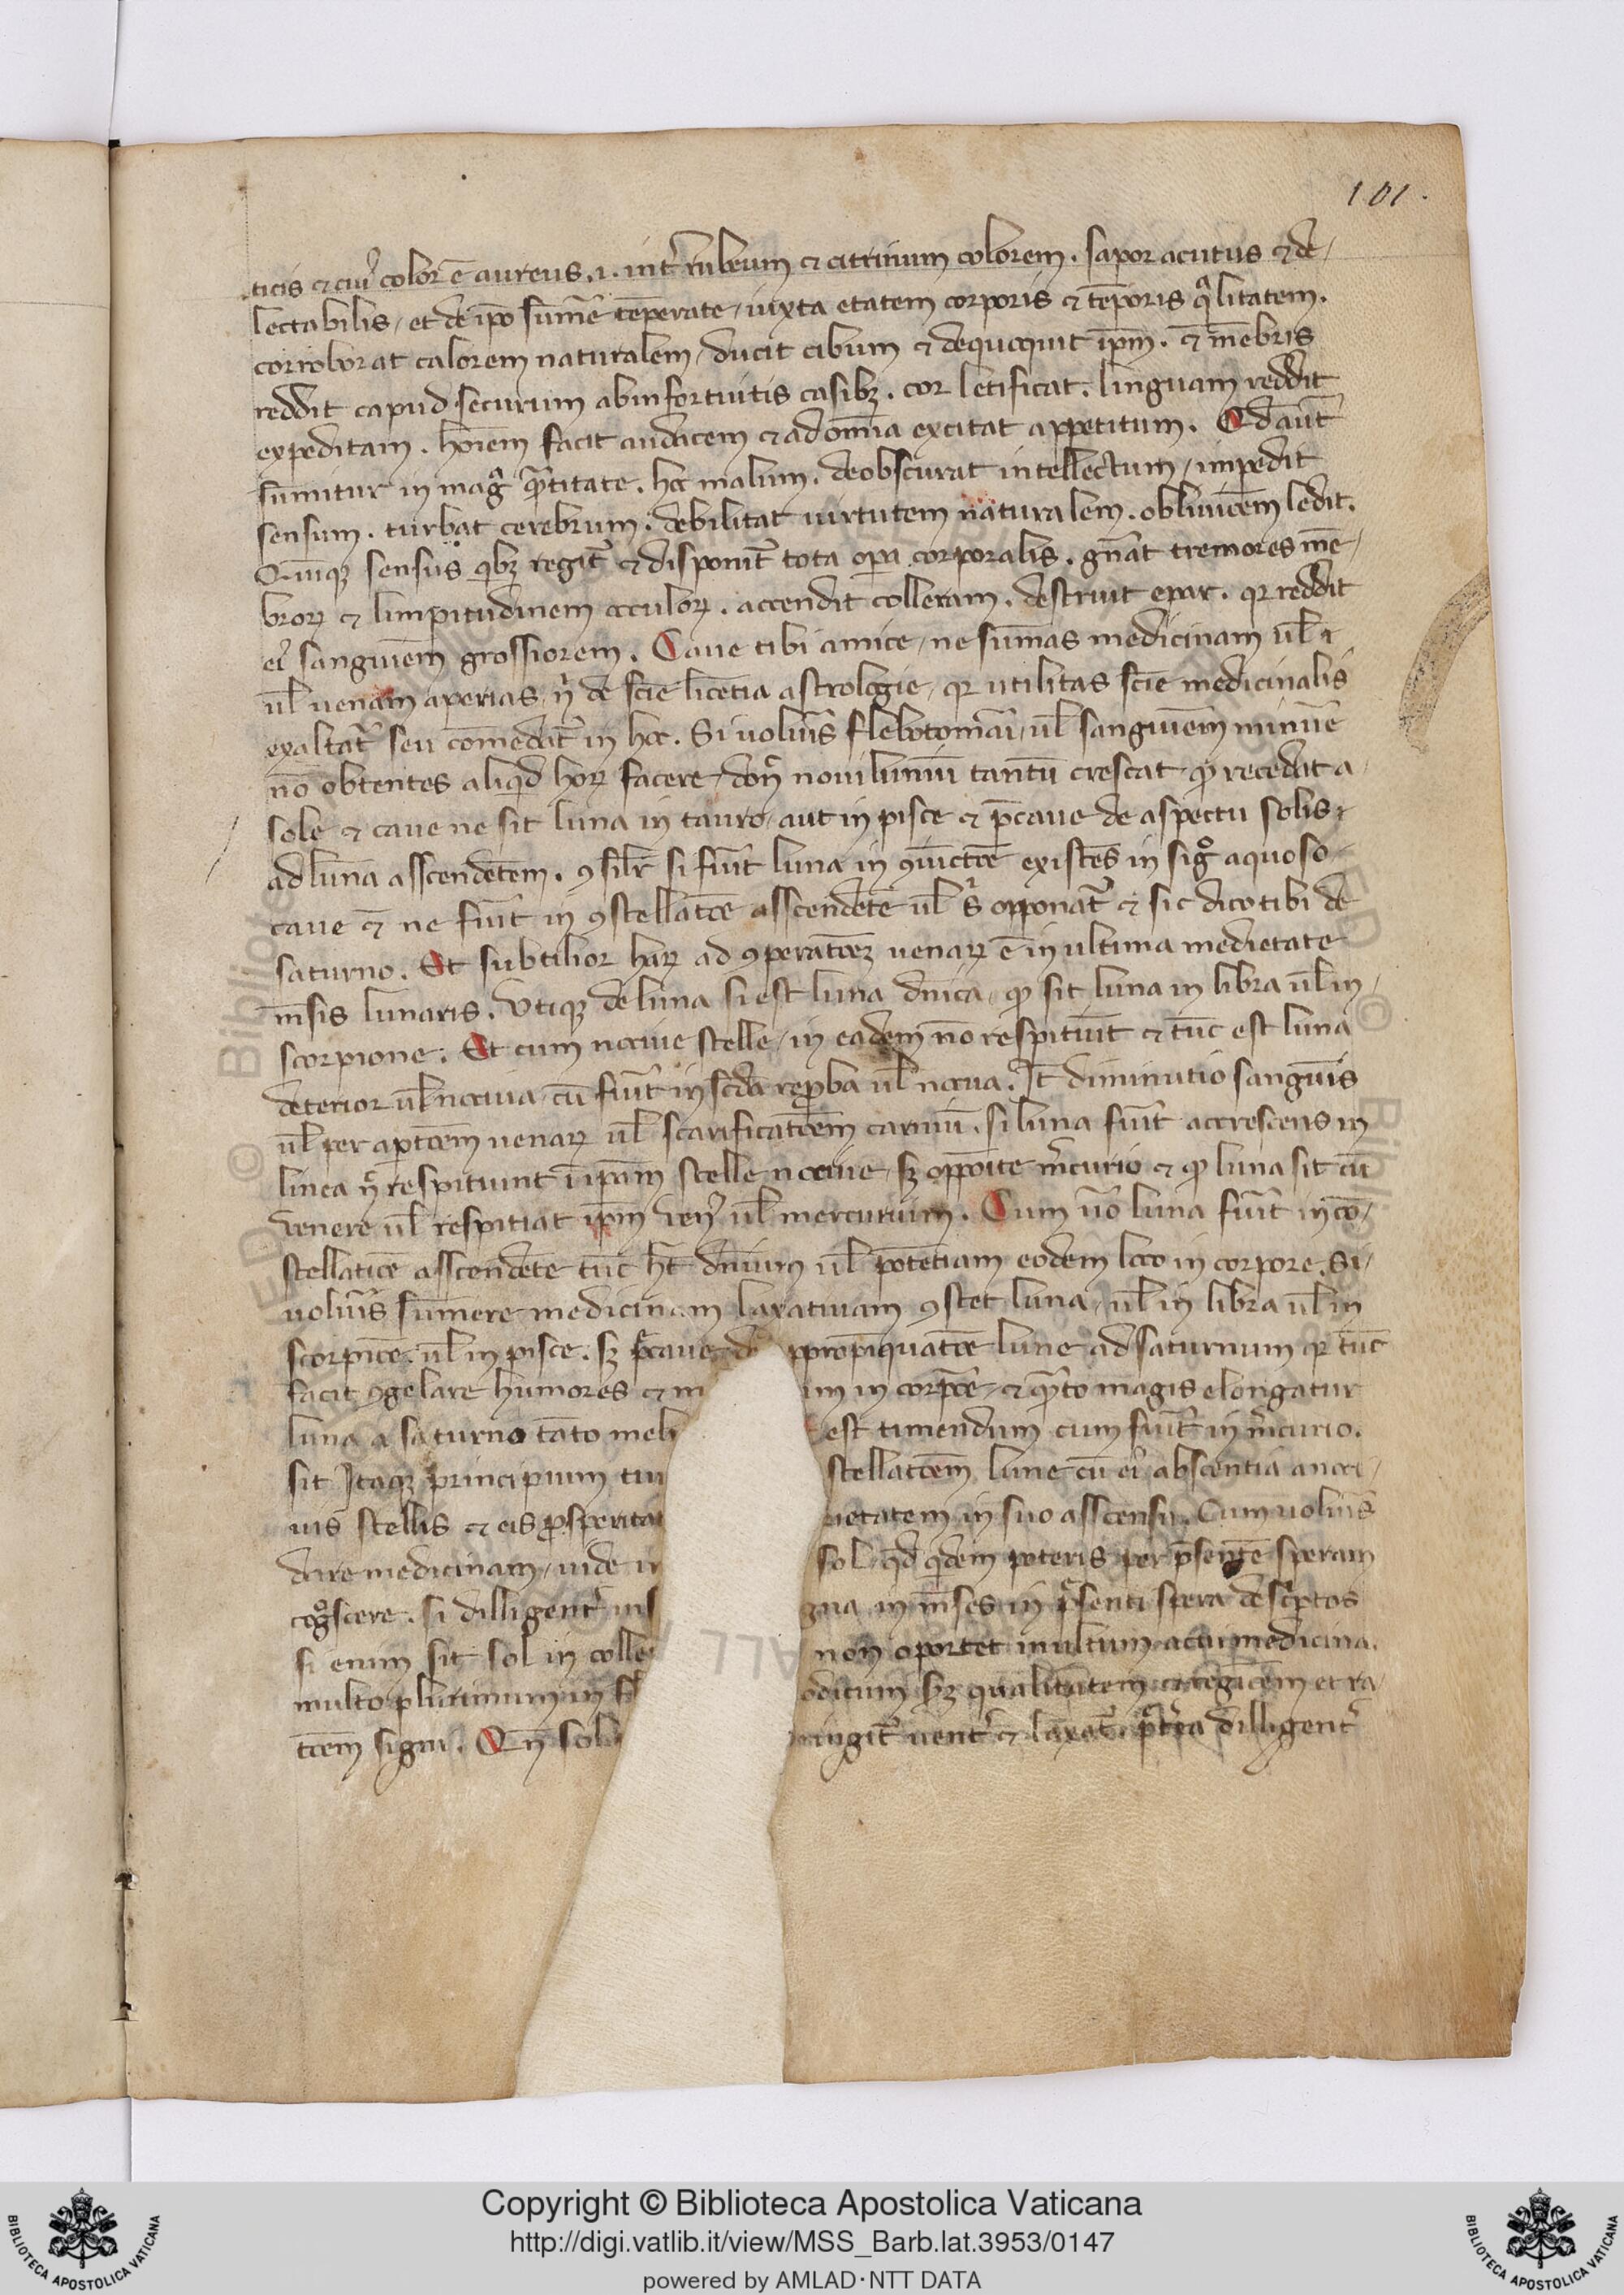 101.
ticis ⁊ cuiꝰ color ē aureus .i. int͛ rubeum ⁊ citrinum colorem. sapor acutus ⁊ de
lectabilis, et de ip̄o sum̄e tēperate, iuxta etatem corporis ⁊ tēporis qͣlitatem.
corroborat calorem naturalem, ducit cibum ⁊ dequoquit ip̄m. ⁊ mēbris
reddit capud securum ab infortuitis casibꝫ. cor letificat. linguam reddit
expeditam. hoīem facit audacem ⁊ ad omīa excitat appetitum. Qd̄ aut̄
sumitur in magͣ qͣ̄titate. hoc malum. deobscurat intellectum, impedit
sensum. turbat cerebrum. debilitat uirtutem naturalem. obliuiōem ledit.
Quīqꝫ sensus qibꝫ regit᷑ ⁊ disponit᷑ tota opa corporalis. gn̄at tremores mē
broꝝ ⁊ limpitudinem occuloꝝ. accendit colleram. destruit epar. qꝛ reddit
eiꝰ sanguīem grossiorem. Caue tibi amice, ne sumas medicinam ul̄
ul̄ uenam aperias, nͥ de sciē licētia astrologie, qꝛ utilitas sciē medicinalis
exaltat᷑ seu cōmēdat᷑ in hoc. Si uolūis flebotomari, ul̄ sanguīem minūe
nō obtentes aliqid hoꝝ facere, donͨ nouiluniū tantū crescat, qͩ recedat a
sole ⁊ caue ne sit luna in tauro, aut in pisce ⁊ p̄caue de aspectu solis
ad lunā asscendētem. ꝯsilr̄ si fūit luna in ꝯiūctōe existēs in sigͦ aquoso
caue ⁊ ne fūit in ꝯstellatōe asscendēte ul̄ sͥ opponat᷑ ⁊ sic dico tibi de
saturno. Et subtilior haꝝ ad ꝯperatōeꝫ uenaꝝ ē in ultima medietate
mēsis lunaris. Utiqꝫ de luna si est luna dn̄ica, qͩ sit luna in libra ul̄ in
scorpione. Et cum nociue stelle, in eadem nō respitiūt ⁊ tūc est luna
deterior ul̄ nociua, cū fūit in scd̄a repͦba ul̄ nociua. It̄ diminutio sanguīs
ul̄ per aptōem uenaꝝ ul̄ scarificatōem carniū. si luna fūit accrescens in
linea nͨ respitiunt ī ip̄am stelle nociue, sꝫ oppōite m̄curio ⁊ qͩ luna sit cū
uenere ul̄ respitiat ip̄m uenꝰ ul̄ mercurium. Cum ūo luna fūit in cō
stellatiōe asscendēte tūc hꝫ dn̄ium ul̄ potētiam eodem loco in corpore. Si
uolūis summere medicinam laxatiuam ꝯstet luna, ul̄ in libra ul̄ in
scorpiōe. ul̄ in pisce. sꝫ p̄caue de ppropīquatōe lune ad saturnum qꝛ tūc
facit ꝯgelare humores ⁊ m im in corpōe, ⁊ qͣ̄to magis elongatur
luna a saturno tāto meli est timendum cum fūit in m̄curio.
sit Itaqꝫ principium tui stellatōem lune cū eiꝰ abscentia a noci
uis stellis ⁊ eis pͦsperitat ietatem in suo asscensu. Cum uolūis
dare medicinam, uide i sol. qd̄ qidem poteris per p̄sentē speram
cogͦscere. si dilligent͛ ins gna in mēses in p̄senti spera descͥptos
si enim sit sol in colle non oportet multum acui medicina.
multo plurimum in odicum sꝫ qualitatem et regiōem et ra
tōem signi. Qn̄ sol ringit᷑ uent͛ ⁊ laxat᷑. ip̄a dilligent͛
Copyright © Biblioteca Apostolica Vaticana
http://digi.vatlib.it/view/MSS_Barb.lat.3953/0147
powered by AMLAD·NTT DATA
BIBLIOTECA APOSTOLICA VATICANA
BIBLIOTECA APOSTOLICA VATICANA